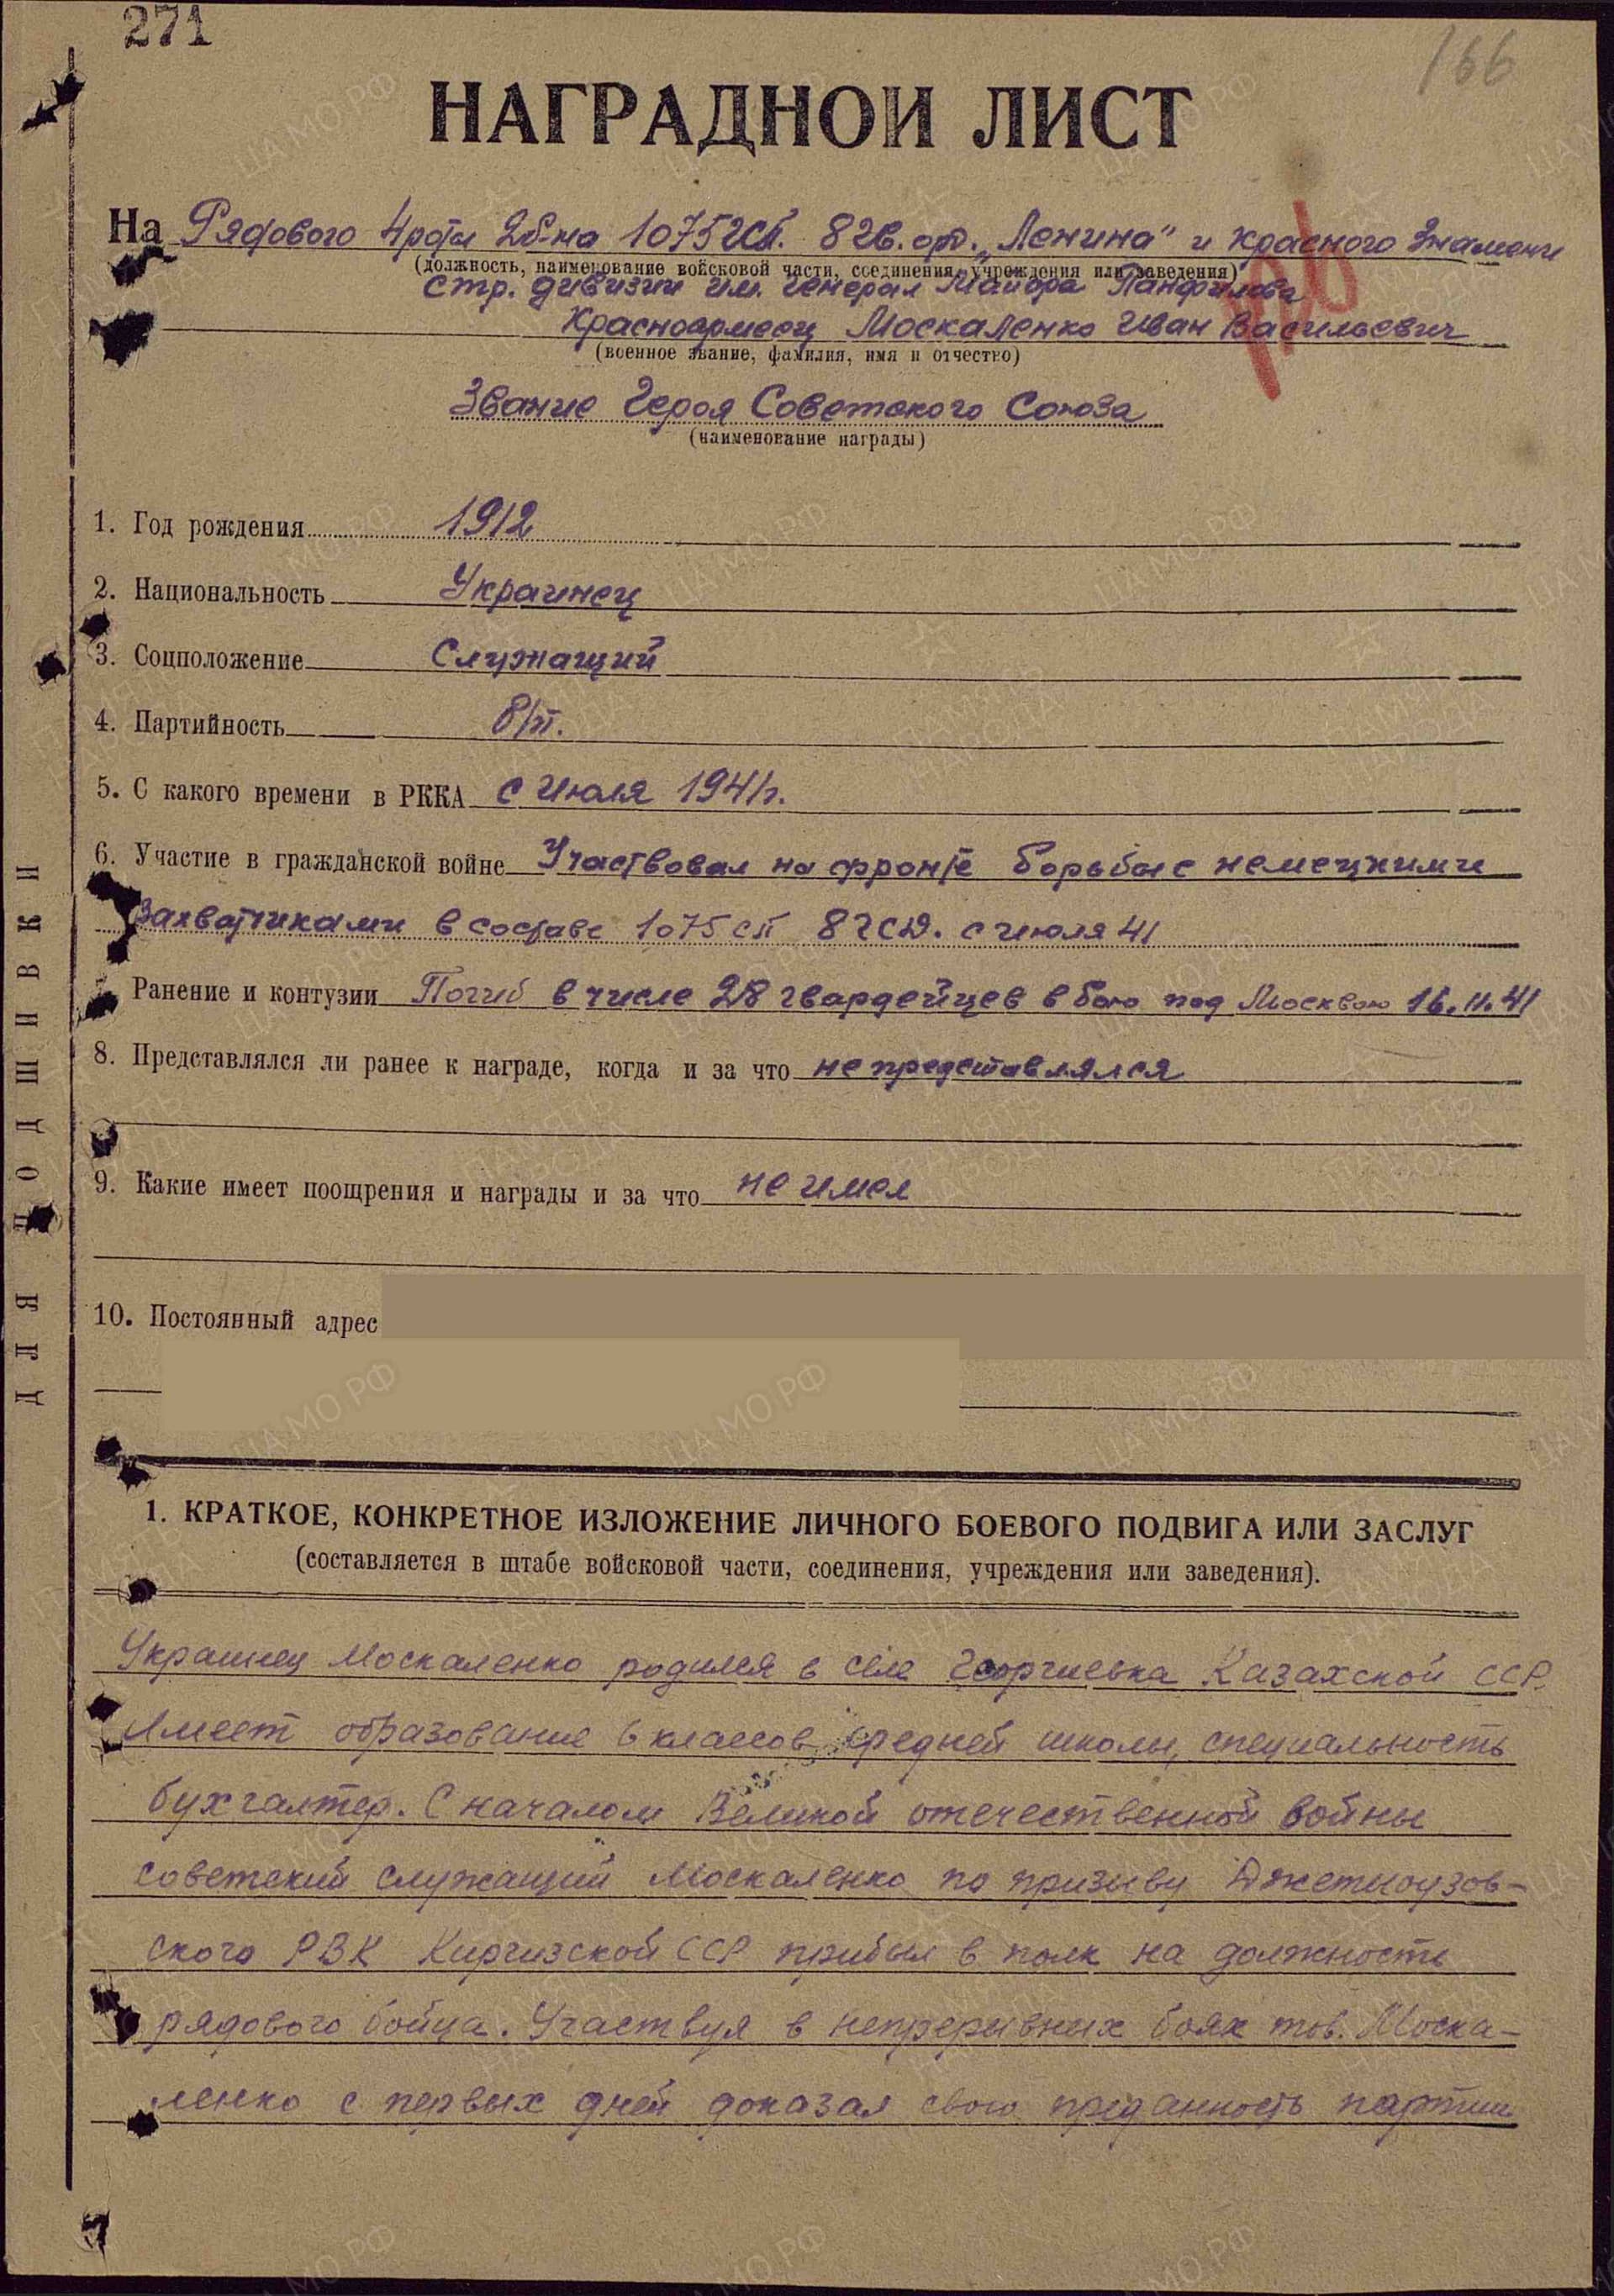 271
166
НАГРАДНОЙ ЛИСТ
На Рядового 4роты 2б-на 1075 гсп. 8 гв. орд. „Ленина" и красного Знамени
(должность, наименование войсковой части, соединения, учреждения или заведения)
стр. дивизии им. генерал Майора Панфилова
Красноармеец Москаленко Иван Васильевич
(военное звание, фамилия, имя и отчество)
Звание Героя Советского Союза
(наименование награды)
1. Год рождения 1912
2. Национальность Украинец
3. Соцположение Служащий
4. Партийность б/п.
5. С какого времени в РККА с июля 1941г.
6. Участие в гражданской войне Участвовал на фронте борьбы с немецкими
захватчиками в составе 1075 сп 8 гсд. с июля 41
Ранение и контузии Погиб в числе 28 гвардейцев в бою под Москвою 16.11.41
8. Представлялся ли ранее к награде, когда и за что не представлялся
9. Какие имеет поощрения и награды и за что не имел
10. Постоянный адрес
1. КРАТКОЕ, КОНКРЕТНОЕ ИЗЛОЖЕНИЕ ЛИЧНОГО БОЕВОГО ПОДВИГА ИЛИ ЗАСЛУГ
(составляется в штабе войсковой части, соединения, учреждения или заведения).
Украинец Москаленко родился в селе Георгиевка Казахской ССР.
Имеет образование 6 классов средней школы, специальность
бухгалтер. С началом Великой отечественной войны
советский служащий Москаленко по призыву Джетыогузов-
ского РВК Киргизской ССР прибыл в полк на должность
рядового бойца. Участвуя в непрерывных боях тов. Моска-
ленко с первых дней доказал свою преданность партии
ДЛЯ ПОДШИВКИ
ЦА МО РФ
ПАМЯТЬ НАРОДА